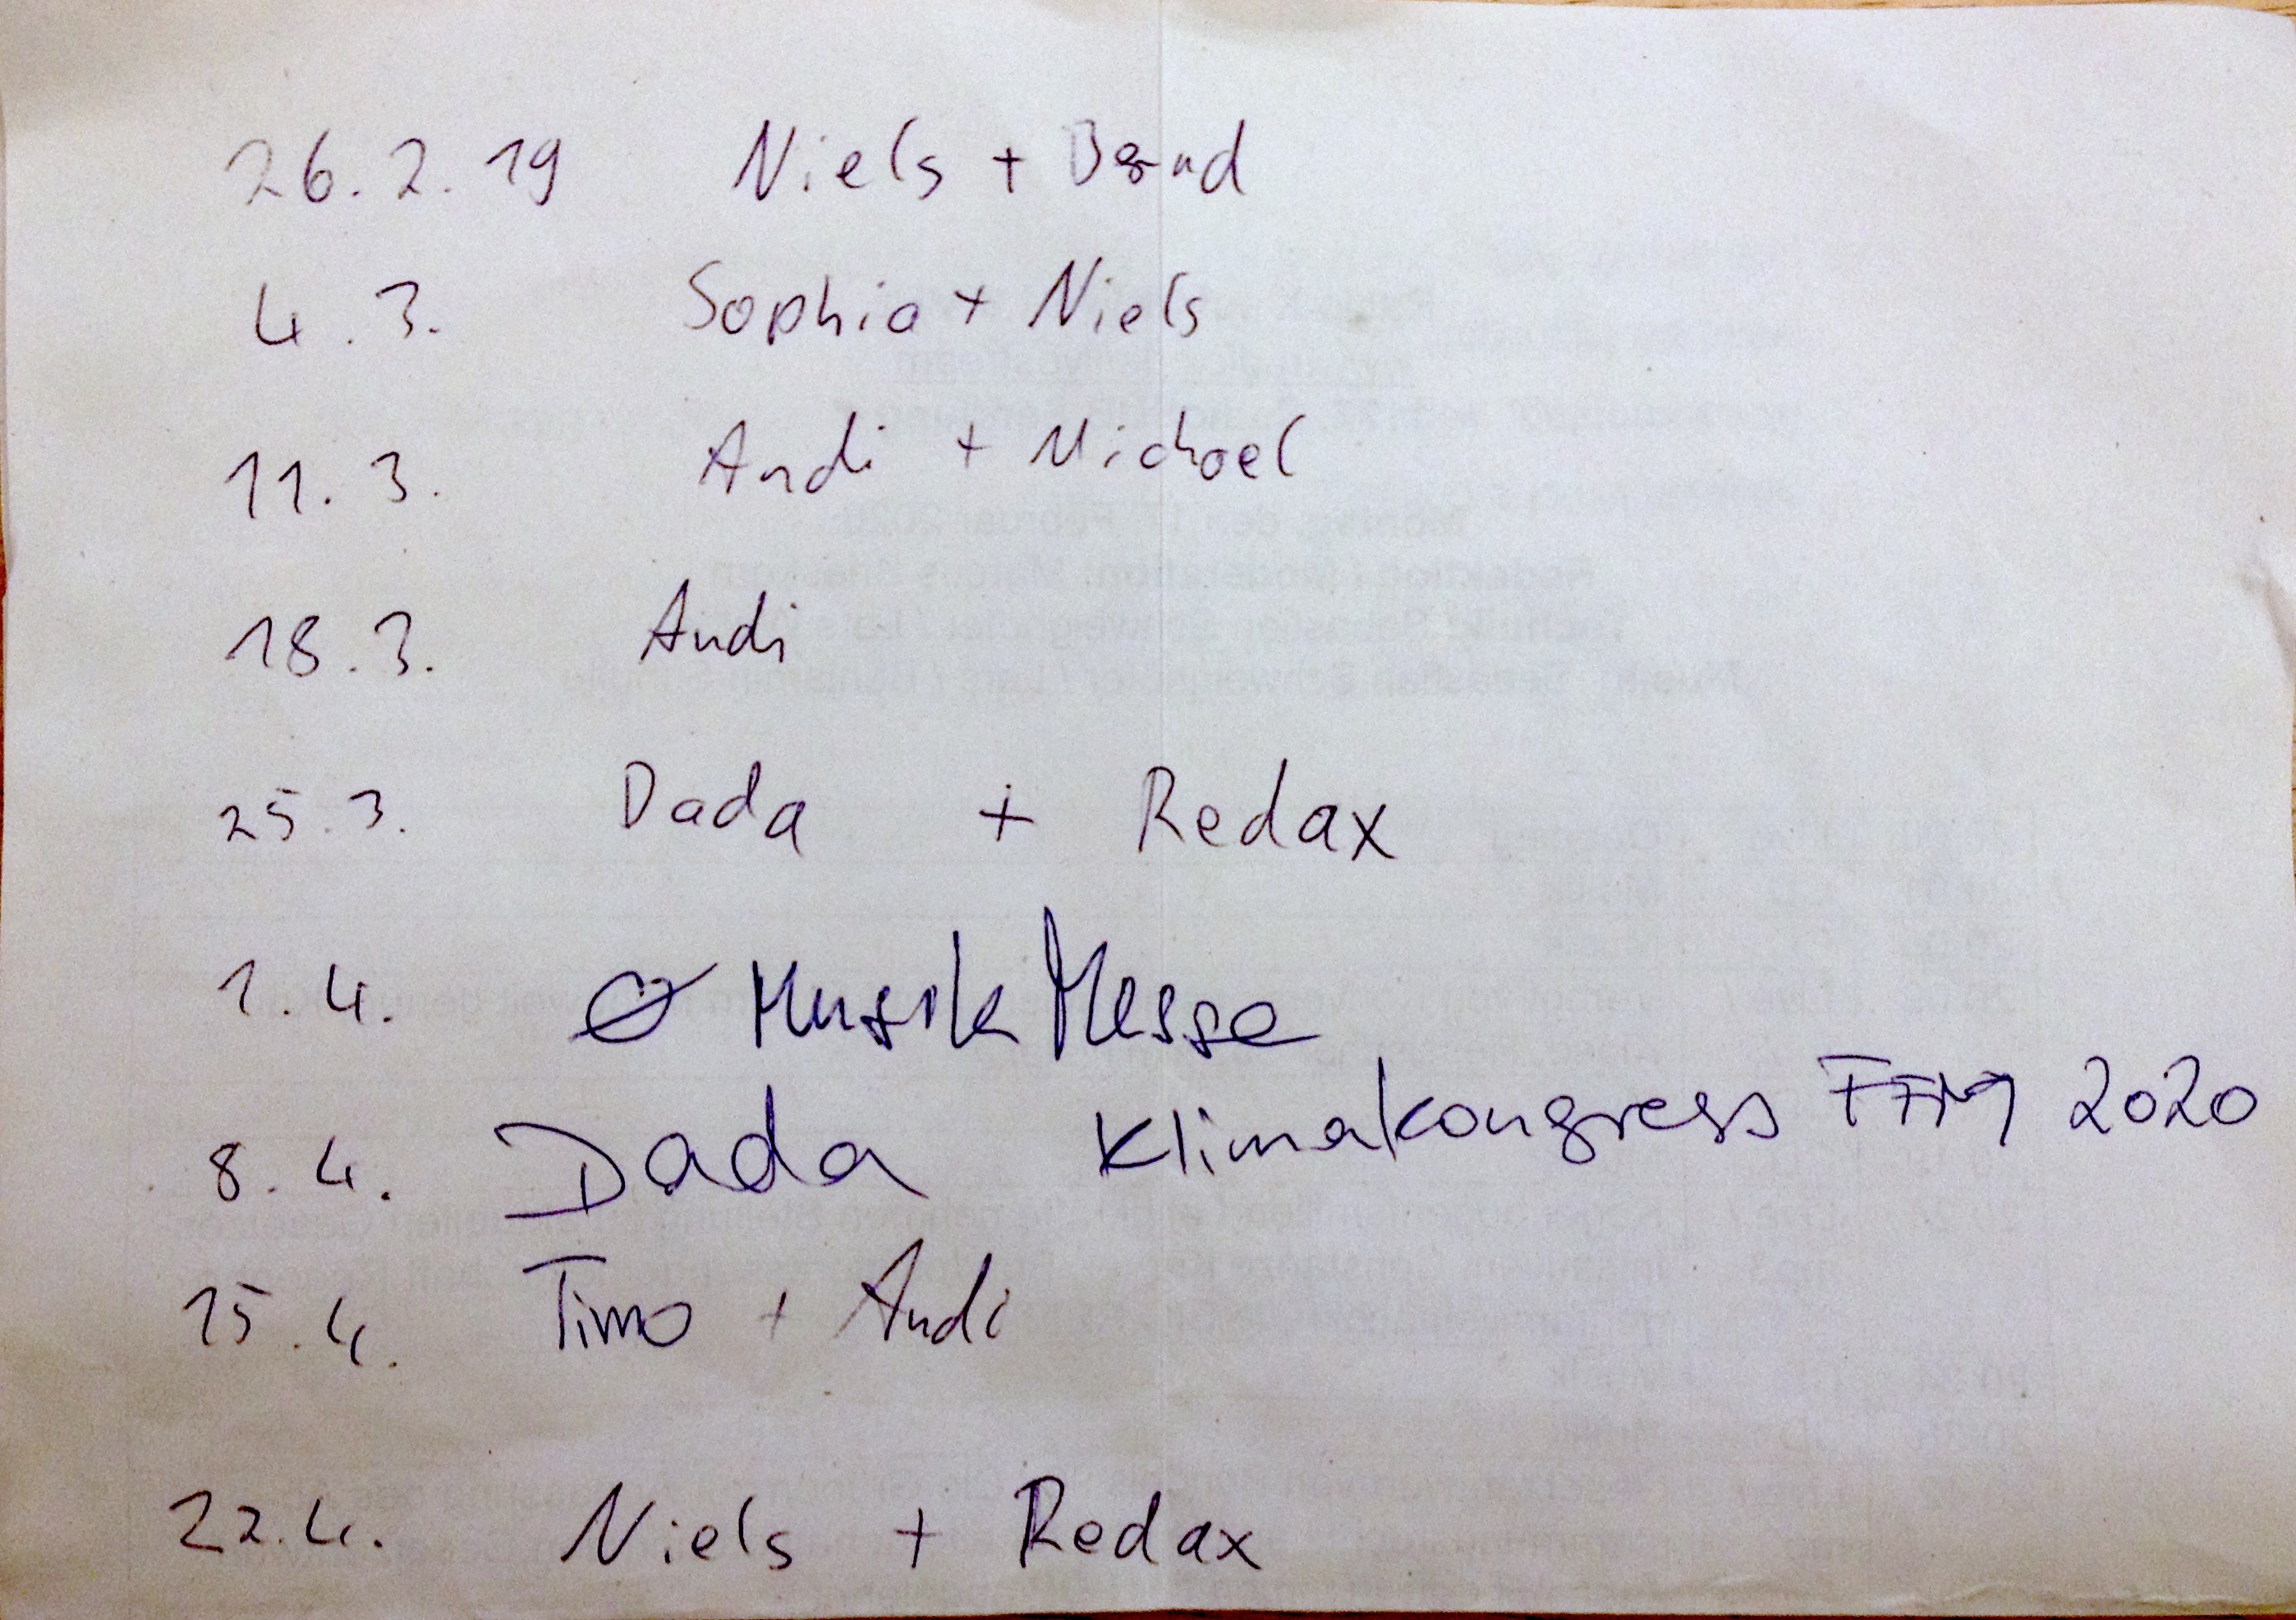 26.2.19 Niels + Bernd
4.3. Sophia + Niels
11.3. Andi + Michael
18.3. Andi
25.3. Dada + Redax
1.4. Musik Messe
8.4. Dada Klimakongress FFM 2020
15.4. Timo + Andi
22.4. Niels + Redax